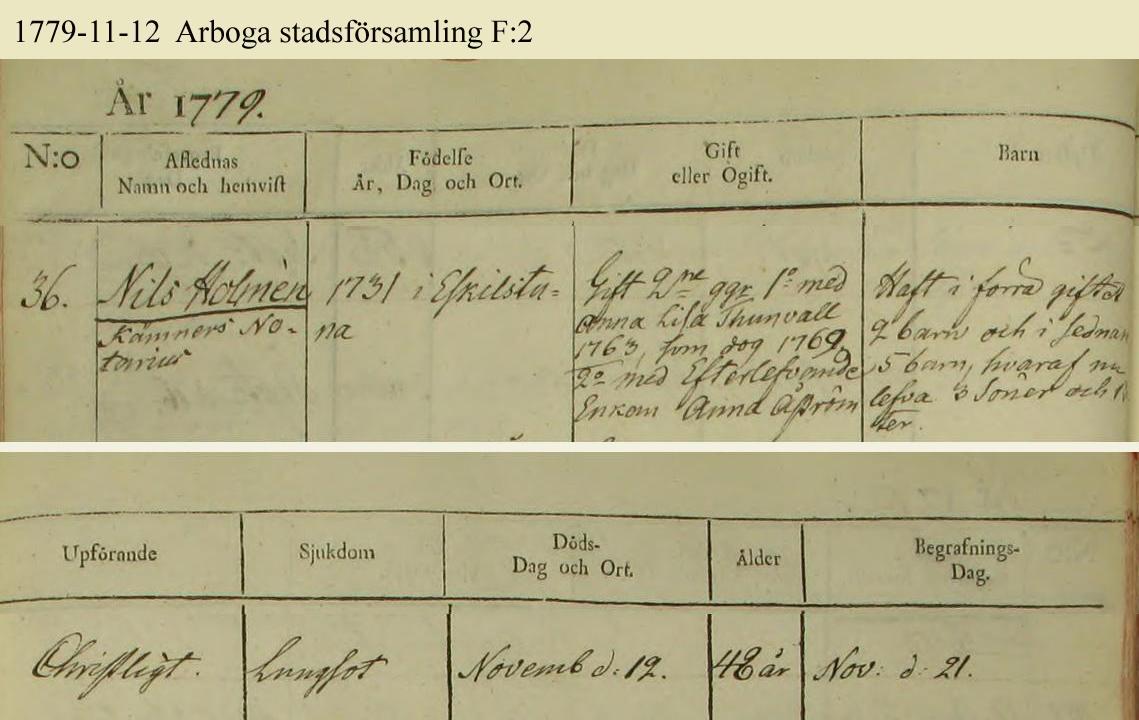 1779-11-12 Arboga stadsförsamling F:2
År 1779.
N:o
Aflednas
Namn och hemvist
Födelse
År, Dag och Ort.
Gift
eller Ogift.
Barn
36.
Nils Holmèn
Kämners No-
tarius
1731 i Eskilstu=
na
Gift 2ne ggr 1o med
Anna Lisa Thunvall
1763, som dog 1769,
2o med Efterlefvande
Enkom Anna
Haft i förra giftet
2 barn och i sednar
5 barn, hvaraf nu
lefva 3 Söner och
ter.
Upförande
Sjukdom
Döds-
Dag och Ort.
Ålder
Begrafnings-
Dag.
Christligt.
Lungsot
Novemb d: 12.
48 år
Nov: d: 21.